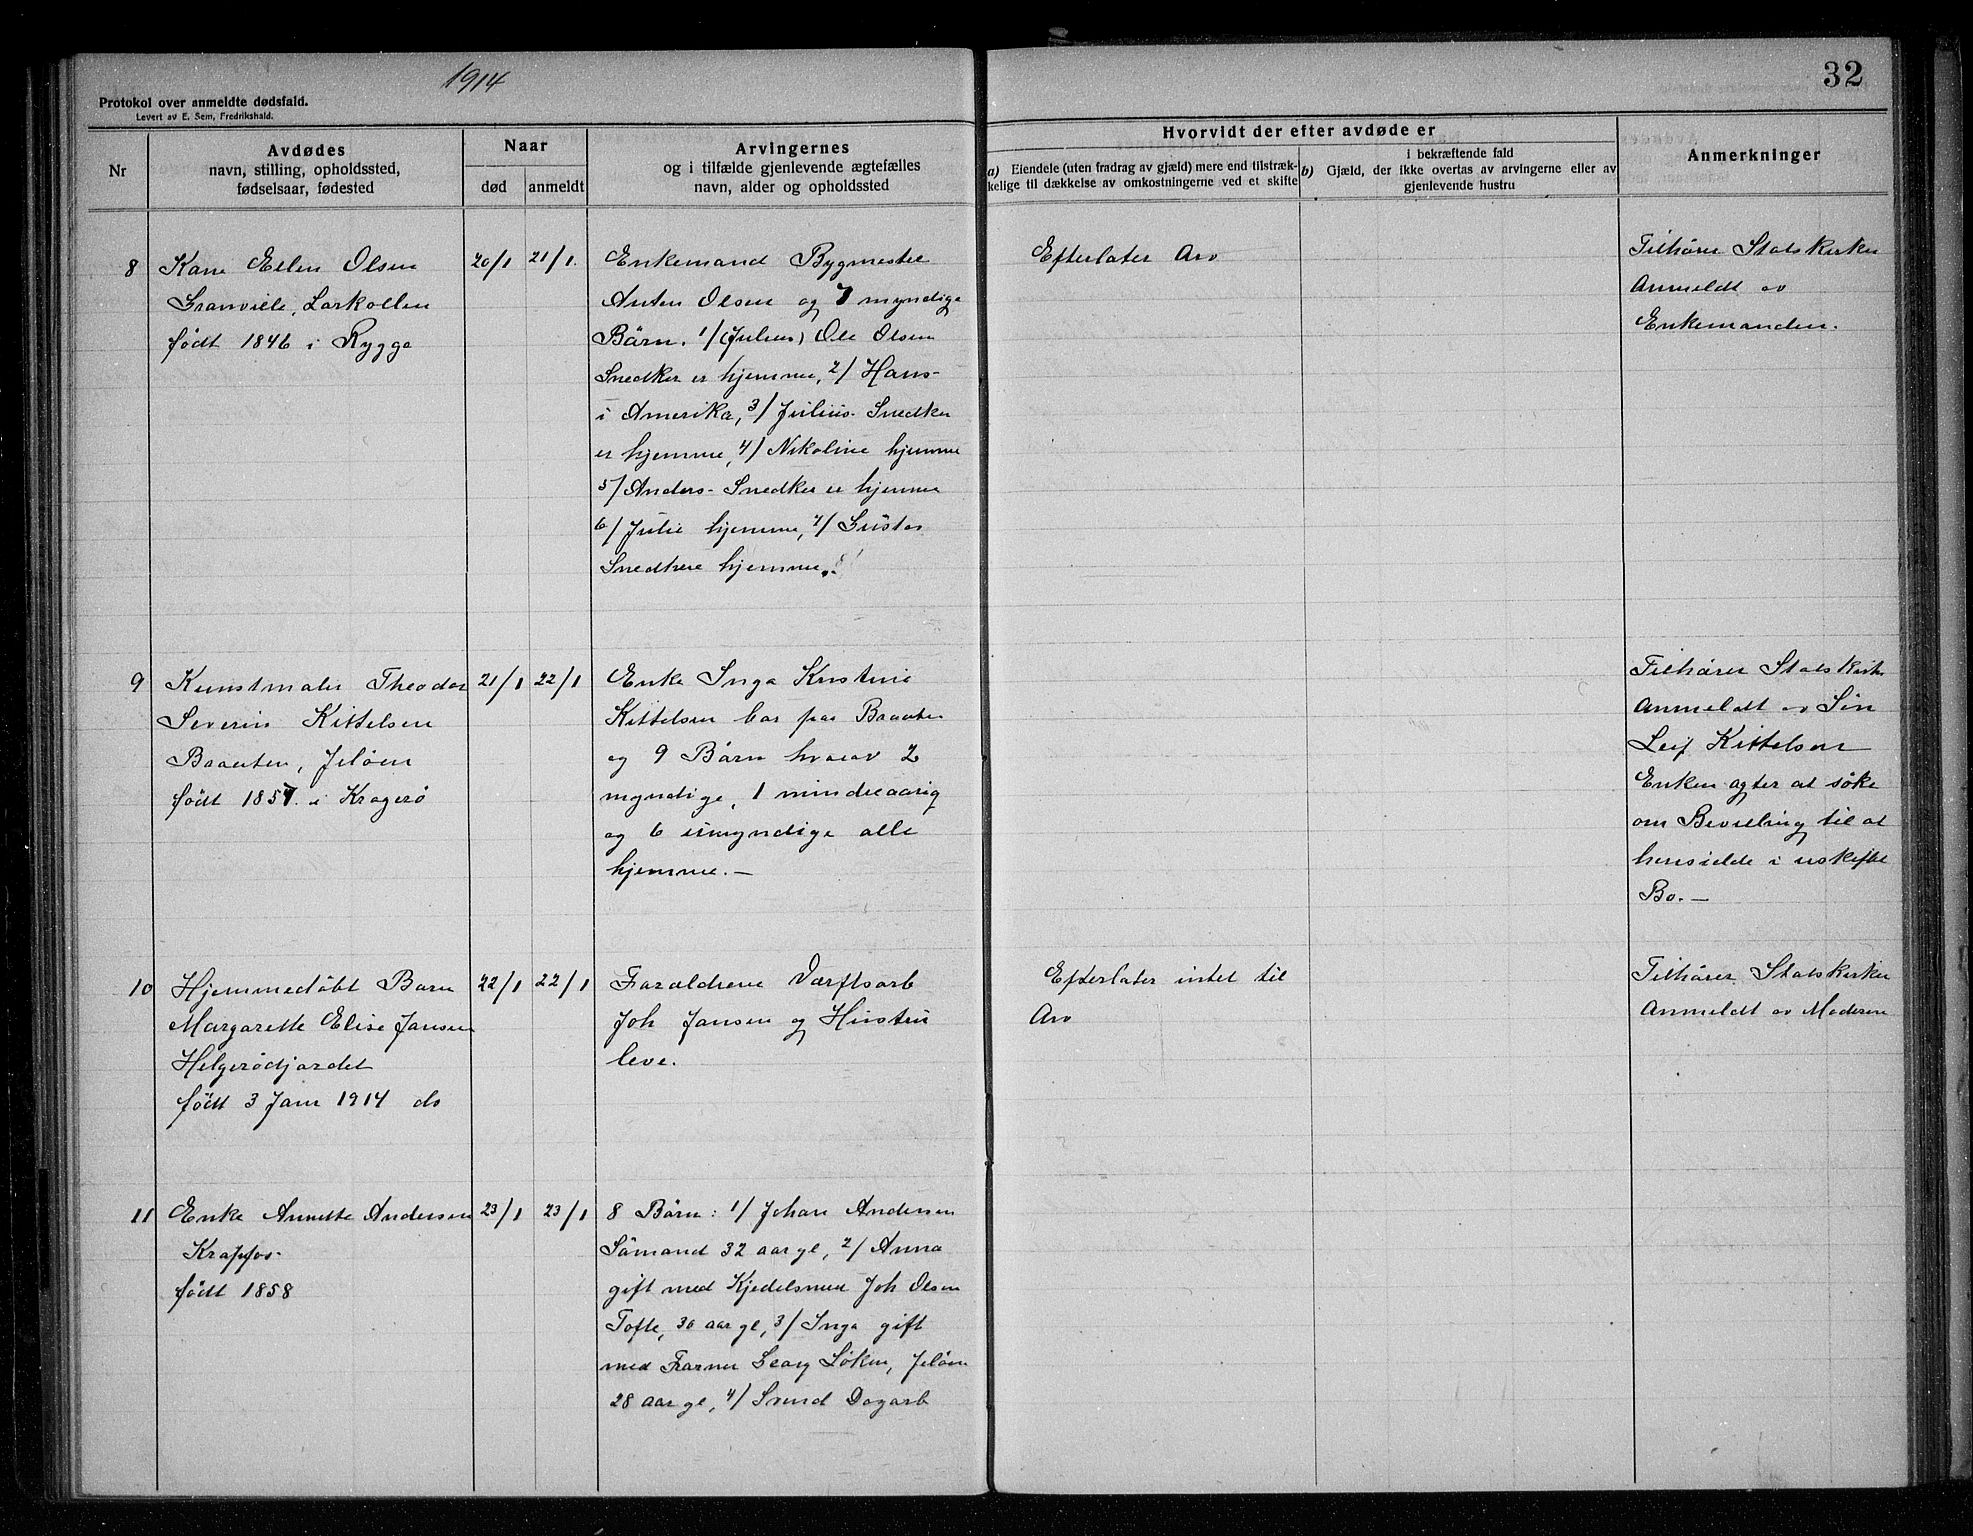 1914
32
Protokol over anmeldte dødsfald.
Levert av E. Sem, Fredrikshald.
Nr
Avdødes
navn, stilling, opholdssted,
fødselsaar, fødested
Naar
død
anmeldt
Arvingernes
og i tilfælde gjenlevende ægtefælles
navn, alder og opholdssted
Hvorvidt der efter avdøde er
a) Eiendele (uten fradrag av gjæld) mere end tilstræk-
kelige til dækkelse av omkostningerne ved et skifte
i bekræftende fald
b) Gjæld, der ikke overtas av arvingerne eller av
gjenlevende hustru
Anmerkninger
8
Kare Ellen Olsen
Granviele, Larkollen
født 1846 i Rygge
20/1
21/1.
Enkemand Bygmester
Anton Olsen og 7 myndige
Børn. 1/ (Julius) Ole Olsen
Snedker er hjemme, 2/ Hans-
i Amerika, 3/ Julius Snedker
er hjemme, 4/ Nikoline hjemme
5/ Anders- Snedker er hjemme
6/ Julie hjemme, 7/ Gustav
Snedkere hjemme.
Efterlater Arv
Tilhører Statskirken
Anmeldt av
Enkemanden.
9
Kunstmaler Theodor
Severin Kittelsen
Braaten, Jeløen
født 1857. i Kragerø
21/1
22/1
Enke Inga Kristine
Kittelsen bor paa Braaten
og 9 Børn hvorav 2
myndige, 1 mindreaarig
og 6 umyndige alle
hjemme.—
Tilhører Statskirken
Anmeldt av Søn
Leif Kittelsen
Enken agter at søke
om Bevilling til at
hensidde i uskiftet
Bo.—
10
Hjemmedøbt Barn
Margarette Elise Jansen
Helgerødjordet
født 3 Janr 1914 do
22/1
22/1
Foraldrene Værftsarb
Joh Jansen og Hustru
leve.
Efterlater intet til
Arv
Tilhører Statskirken
Anmeldt av Moderen
11
Enke Annette Andersen
Krapfos-
født 1858
23/1
23/1
8 Børn: 1/ Johan Andersen
Sømand 32 aar gl, 2/ Anna
gift med Kjedelsmed Joh Olsen
Tofte, 30 aar gl, 3/ Inga gift
med Georg Løken, Jeløen
28 aar gl, 4/ Svend Dagarb